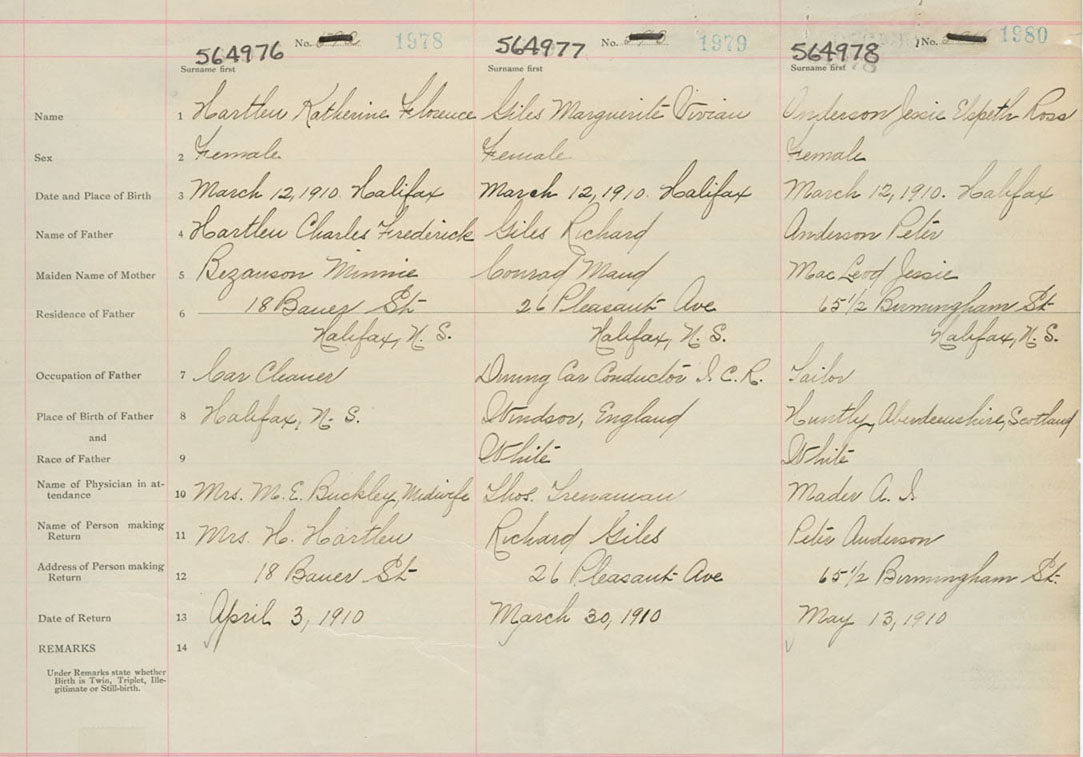 564976 No. 1978 564977 No. 1979 564978 No. 1980
Surname first Surname first Surname first
Name 1 Hartlen Katherine Florence Giles Marguerite Vivian Anderson Jessie Elspeth Ross
Sex 2 Female Female Female
Date and Place of Birth 3 March 12, 1910. Halifax March 12, 1910. Halifax March 12, 1910. Halifax
Name of Father 4 Hartlen Charles Frederick Giles Richard Anderson Peter
Maiden Name of Mother 5 Bezanson Minnie Conrad Maud MacLeod Jessie
Residence of Father 6 18 Bauer St 26 Pleasant Ave 65 1/2 Birmingham St
Halifax, N. S. Halifax, N. S. Halifax, N. S.
Occupation of Father 7 Car Cleaner Dining Car Conductor I. C. R. Tailor
Place of Birth of Father 8 Halifax, N. S. Windsor, England Huntly, Aberdeenshire, Scotland
and
Race of Father 9 White White
Name of Physician in at-
tendance 10 Mrs. M. E. Buckley, Midwife Thos. Trenaman Mader A. I.
Name of Person making
Return 11 Mrs. H. Hartlen Richard Giles Peter Anderson
Address of Person making
Return 12 18 Bauer St 26 Pleasant Ave 65 1/2 Birmingham St.
Date of Return 13 April 3, 1910 March 30, 1910 May 13, 1910
REMARKS 14
Under Remarks state whether
Birth is Twin, Triplet, Ille-
gitimate or Still-birth.